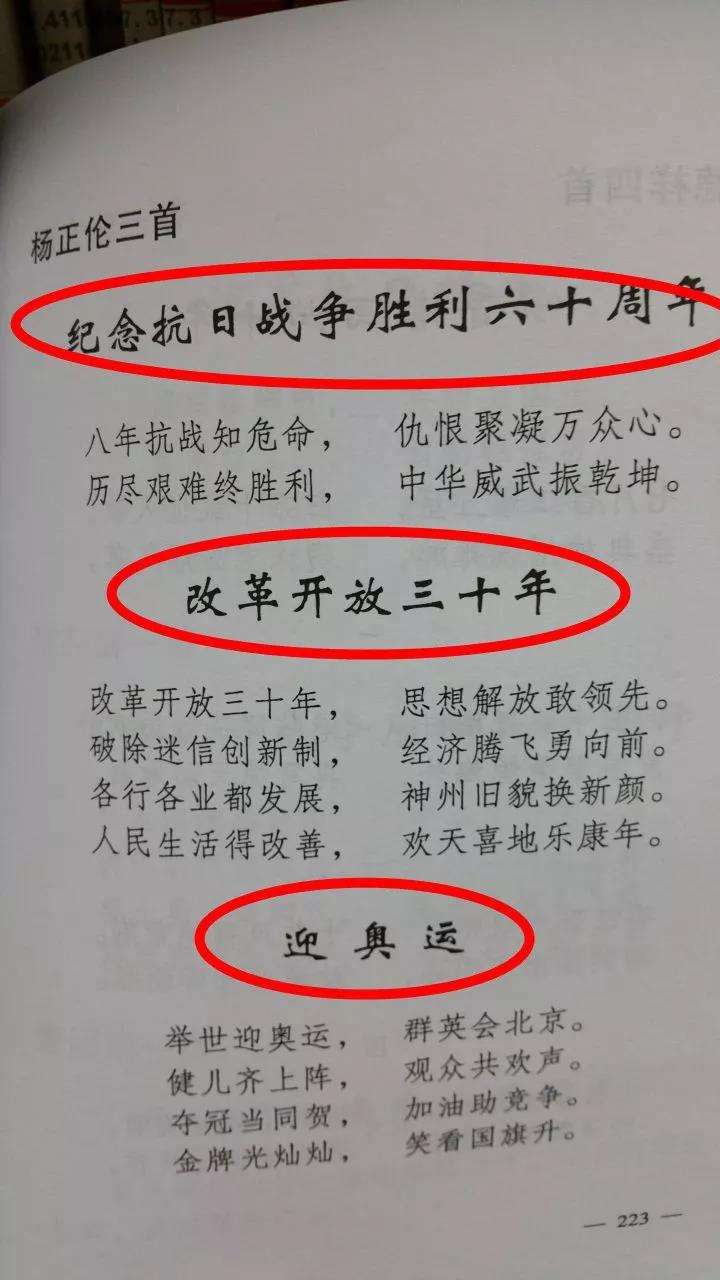 杨正伦三首
纪念抗日战争胜利六十周年
八年抗战知危命， 仇恨聚凝万众心。
历尽艰难终胜利， 中华威武振乾坤。
改革开放三十年
改革开放三十年， 思想解放敢领先。
破除迷信创新制， 经济腾飞勇向前。
各行各业都发展， 神州旧貌换新颜。
人民生活得改善， 欢天喜地乐康年。
迎奥运
举世迎奥运， 群英会北京。
健儿齐上阵， 观众共欢声。
夺冠当同贺， 加油助竞争。
金牌光灿灿， 笑看国旗升。
— 223 —